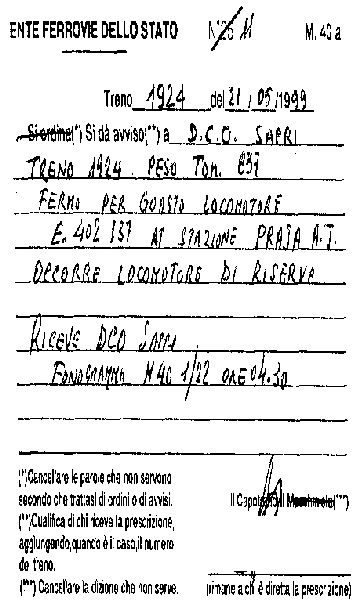 ENTE FERROVIE DELLO STATO N°25 11 M. 40 a
Treno 1924 del 21/05/1999
Si ordine(*) Si dà avviso(**) a D.C.O. SAPRI
TRENO 1924 PESO TON. 837
FERMO PER GUASTO LOCOMOTORE
E. 402 137 AT STAZIONE PRAIA A.T.
OCCORRE LOCOMOTORE DI RISERVA
RICEVE DCO SAPRI
FONOGRAMMA M40 1/22 ORE 04.30
(*)Cancellare le parole che non servono
secondo che trattasi di ordini o di avvisi.
(**)Qualifica di chi riceve la prescrizione,
aggiungendo,quando è il caso,il numero
de treno.
(***) Cancellare la dizione che non serve.
Il Capotreno/Il Macchinista(***)
(rimane a chi è diretta la prescrizione)